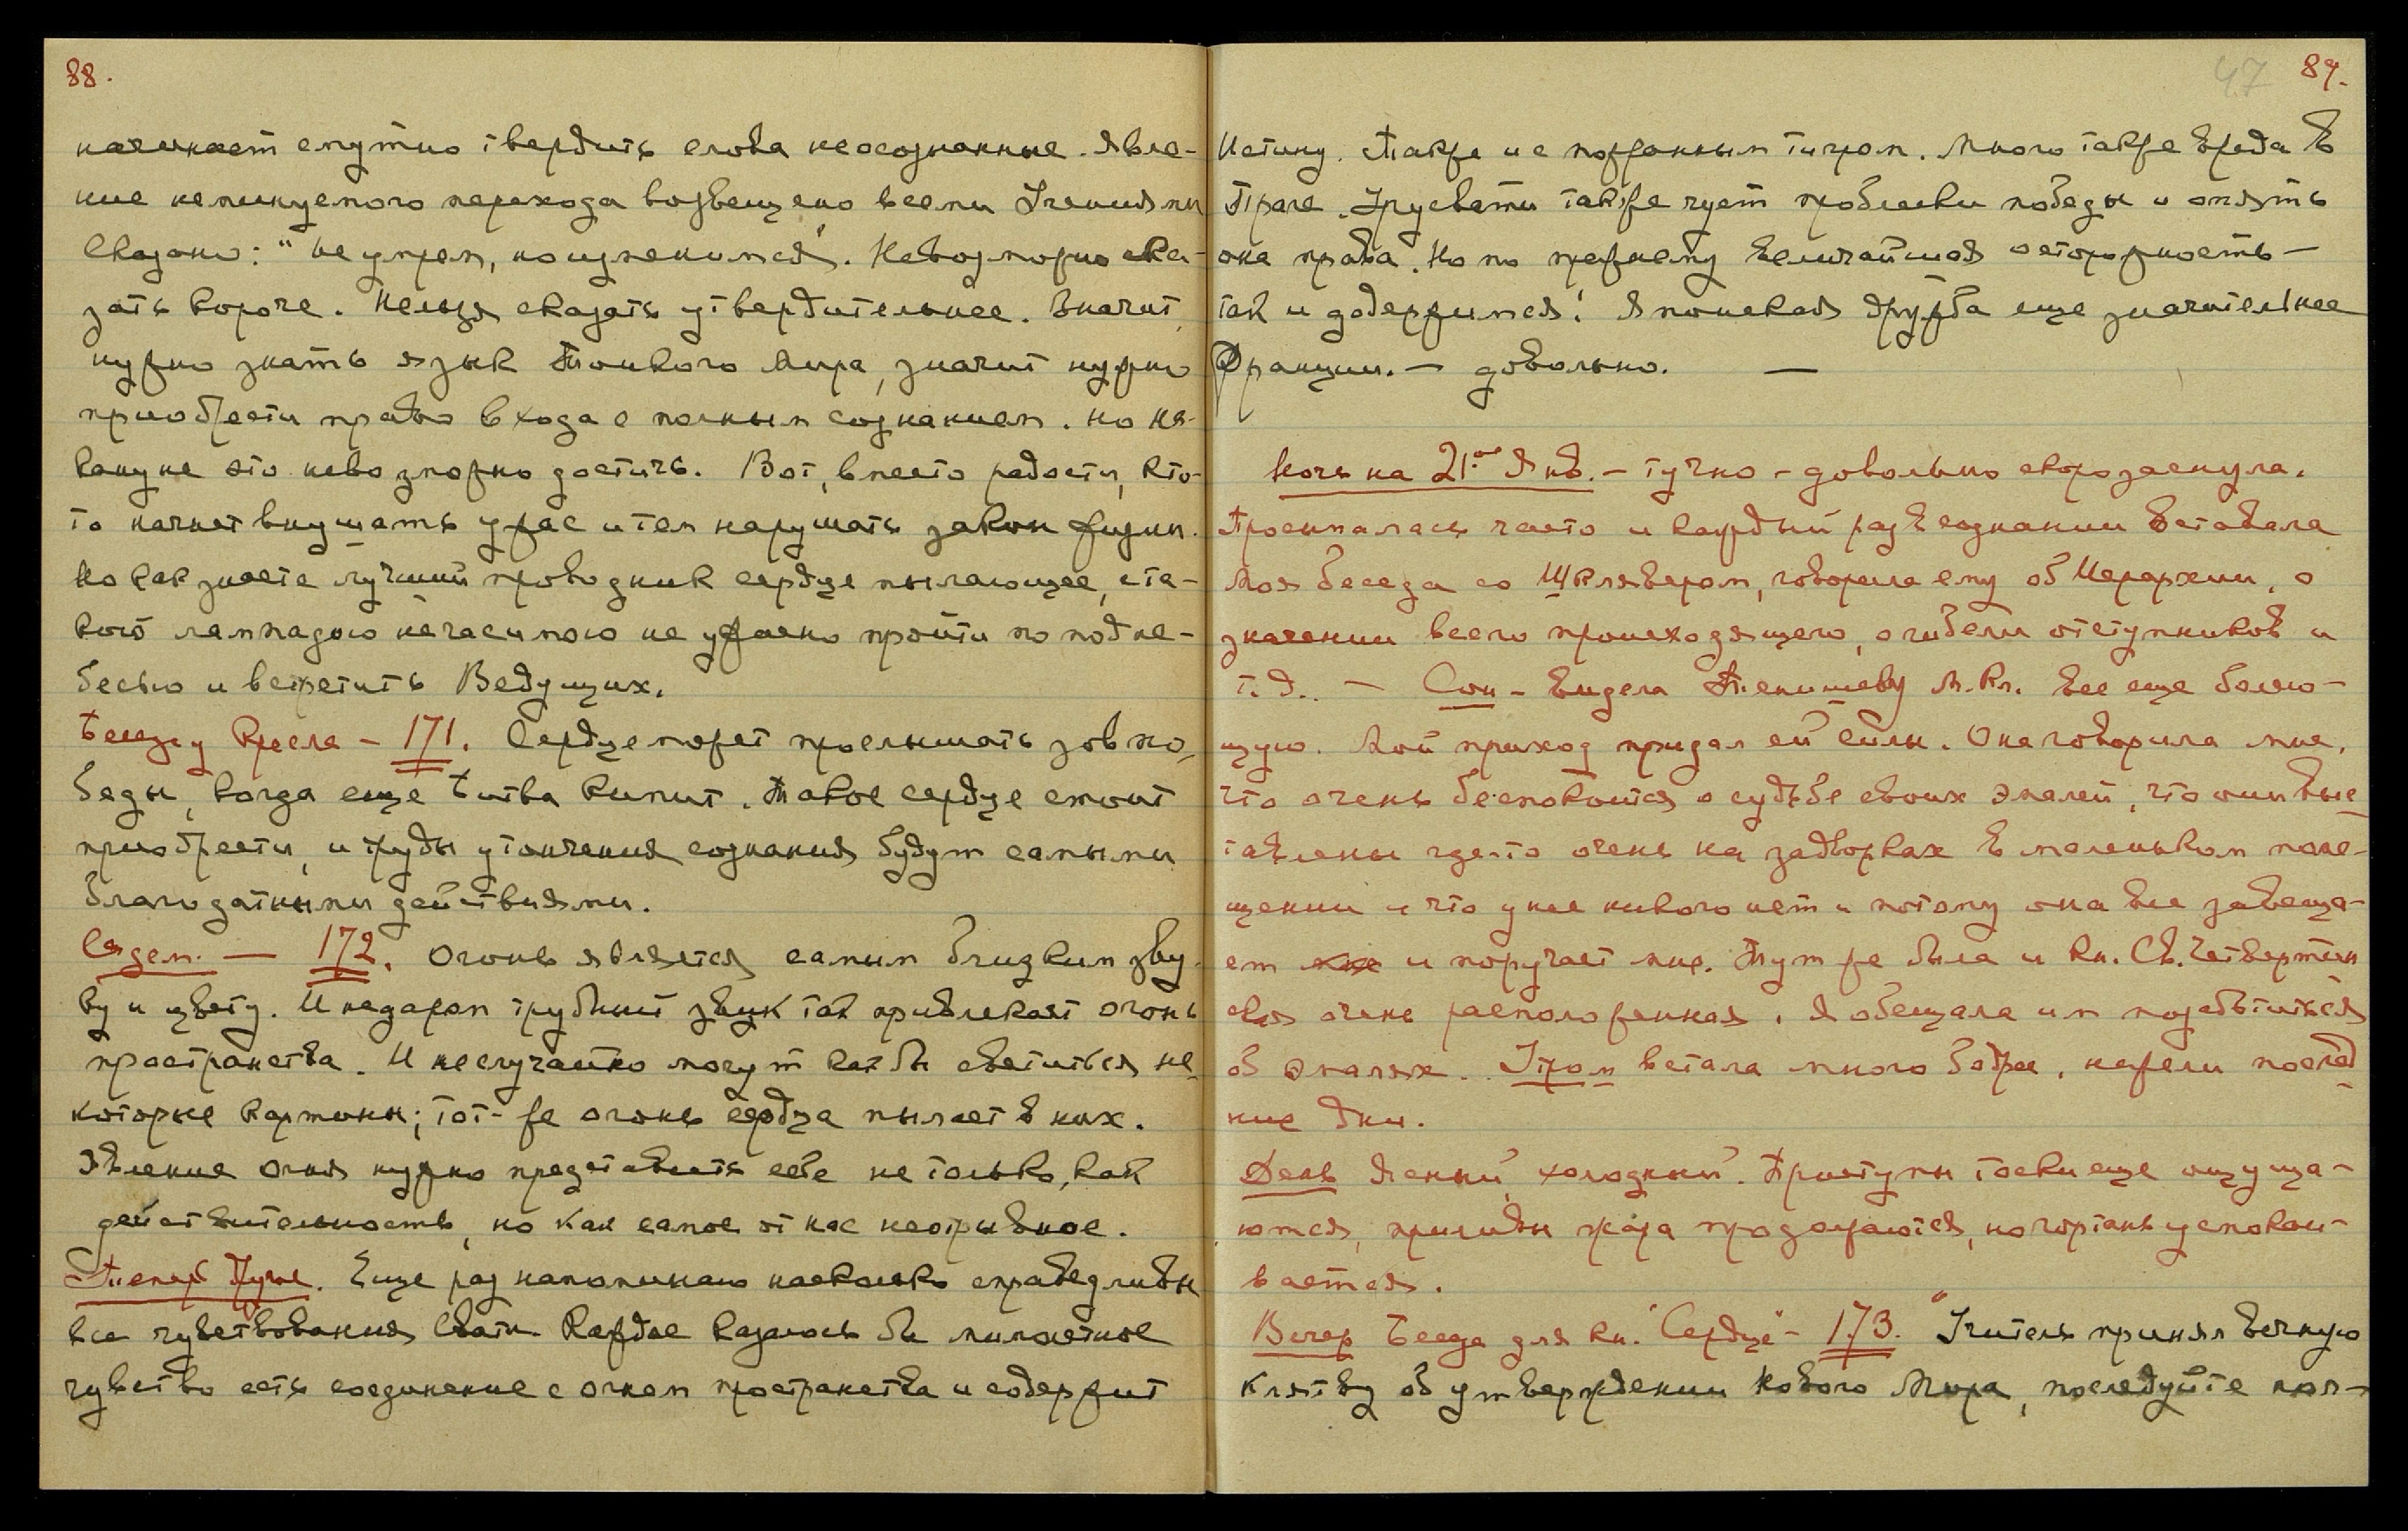 88.
начинает смутно твердить слова неосознанные. Явле-
ние неминуемого перехода возвещено всеми Учениями
Сказано: "не умрем, но изменимся". Невозможно ска-
зать короче. Нельзя сказать утвердительнее. Значит,
нужно знать язык Тонкого Мира, значит нужно
приобрести право входа с полным сознанием. Но на-
кануне это невозможно достичь. Вот, вместо радости, кто-
то начнет внушать ужас и тем нарушать закон жизни.
Но как знаете лучший проводник сердце пылающее, с та-
кою лампадою негасимою не ужасно пройти по подне-
бесью и встретить Ведущих.
Беседа у Кресла – 171. Сердце может прослышать зов по-
беды, когда еще битва кипит. Такое сердце стоит
приобрести, и труды утончения сознания будут самыми
благодатными действиями.
Сядем. — 172. Огонь является самым близким зву-
ку и цвету. И недаром трубный звук так привлекает огонь
пространства. И неслучайно могут как бы светиться не-
которые картины; тот-же огонь сердца пылает в них.
Явление огня нужно представить себе не только, как
действительность, но как самое от нас неотрывное.
Теперь Другое. Еще раз напоминаю насколько справедливы
все чувствования Свати. Каждое казалось бы мимолетное
чувство есть соединение с огнем пространства и содержит
47 89.
Истину. Также и с поджанным тигром. Много также вреда в
Праге. Урусвати также чует проблески победы и опять
она права. Но по прежнему величайшая осторожность –
так и додержимся! Японская дружба еще значительнее
Франции. – довольно. —
Ночь на 21-ое Янв. – тучно – довольно скоро заснула.
Просыпалась часто и каждый раз в сознании вставала
моя беседа со Шклявером, говорила ему об Иерархии, о
значении всего происходящего, о гибели отступников и
т.д.. – Сон – видела Тенишеву М.Кл. все еще болею-
щую. Мой приход придал ей силы. Она говорила мне,
что очень беспокоится о судьбе своих эмалей, что они выс-
тавлены где-то очень на задворках в маленьком поме-
щении и что у нее никого нет и потому она все завеща-
ет и поручает мне. Тут же была и Кн. Св. Четвертин
ская очень расположенная. Я обещала им позаботиться
об эмалях. Утром встала много бодрее, нежели послед
ние дни.
День ясный, холодный. Приступы тоски еще ощуща-
ются, приливы жара продолжаются, но гортань успокаи-
вается.
Вечер Беседа для кн. "Сердце" – 173. "Учитель принял вечную
клятву об утверждении Нового Мира, последуйте кля-